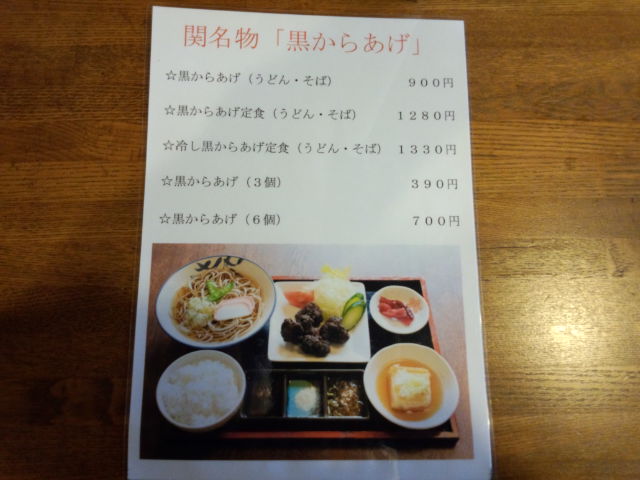 関名物「黒からあげ」
☆黒からあげ（うどん・そば） ９００円
☆黒からあげ定食（うどん・そば） １２８０円
☆冷し黒からあげ定食（うどん・そば） １３３０円
☆黒からあげ（３個） ３９０円
☆黒からあげ（６個） ７００円